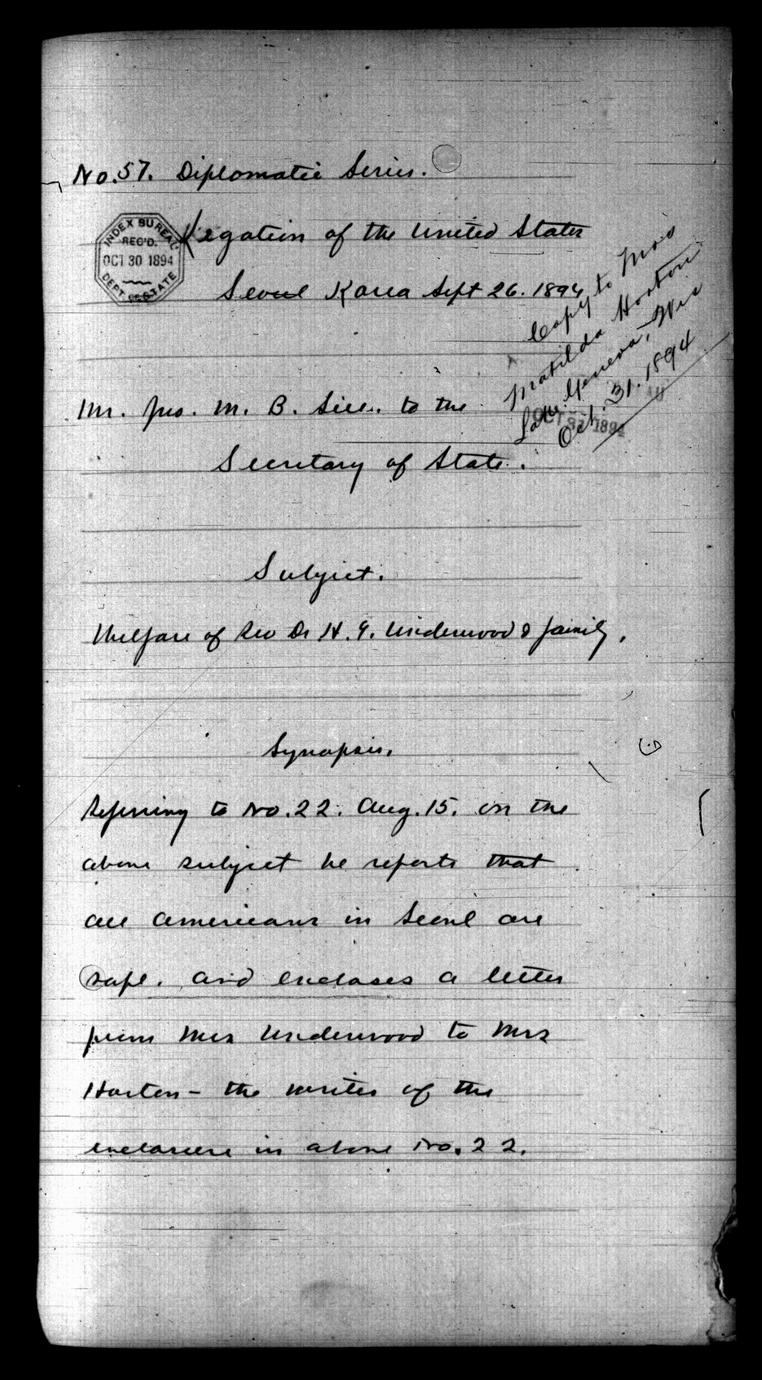 No. 57. Diplomatic Series.
INDEX BUREAU
REC'D.
OCT 30 1894
DEPT OF STATE
Legation of the United States
Seoul Korea Sept 26. 1894
Copy to Mrs
Matilda Horton
Lake Geneva, Wis
Oct. 31. 1894
OCT 31 1894
Mr. Jno. M. B. Sill. to the
Secretary of State.
Subject.
Welfare of Rev Dr H. G. Underwood & family.
Synopsis.
Referring to No. 22. Aug. 15. on the
above subject he reports that
all Americans in Seoul are
safe. and encloses a letter
from Mrs Underwood to Mrs
Horton - the writer of the
enclosure in above No. 22.